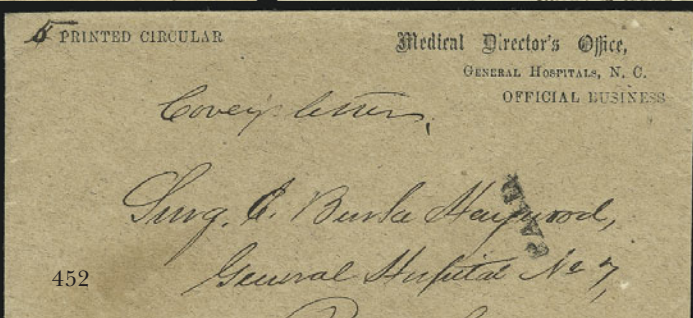 5 PRINTED CIRCULAR
Medical Director's Office,
GENERAL HOSPITALS, N. C.
OFFICIAL BUSINESS
letter,
Surg. E. Burke Haywood,
PAID
General Hospital No 7,
452